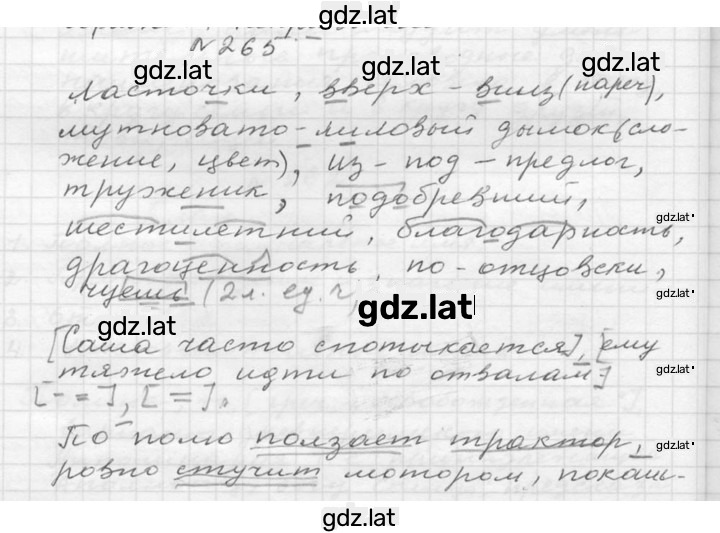 gdz.lat
N 265
gdz.lat gdz.lat gdz.lat
ласточки, вверх - вниз (нареч),
мутновато-лиловый дымок (сло-
жение, цвет), из-под - предлог,
труженик, подобревший,
gdz.lat
шестилетний, благодарность,
драгоценность, по-отцовски,
gdz.lat
чуешь (2 л. ед. ч,
gdz.lat
gdz.lat
[Саша часто спотыкается], [ему
тяжело идти по отвалам]
gdz.lat
[- =], [=].
По полю ползает трактор,
gdz.lat
ровно стучит мотором, покаш-
gdz.lat
gdz.lat